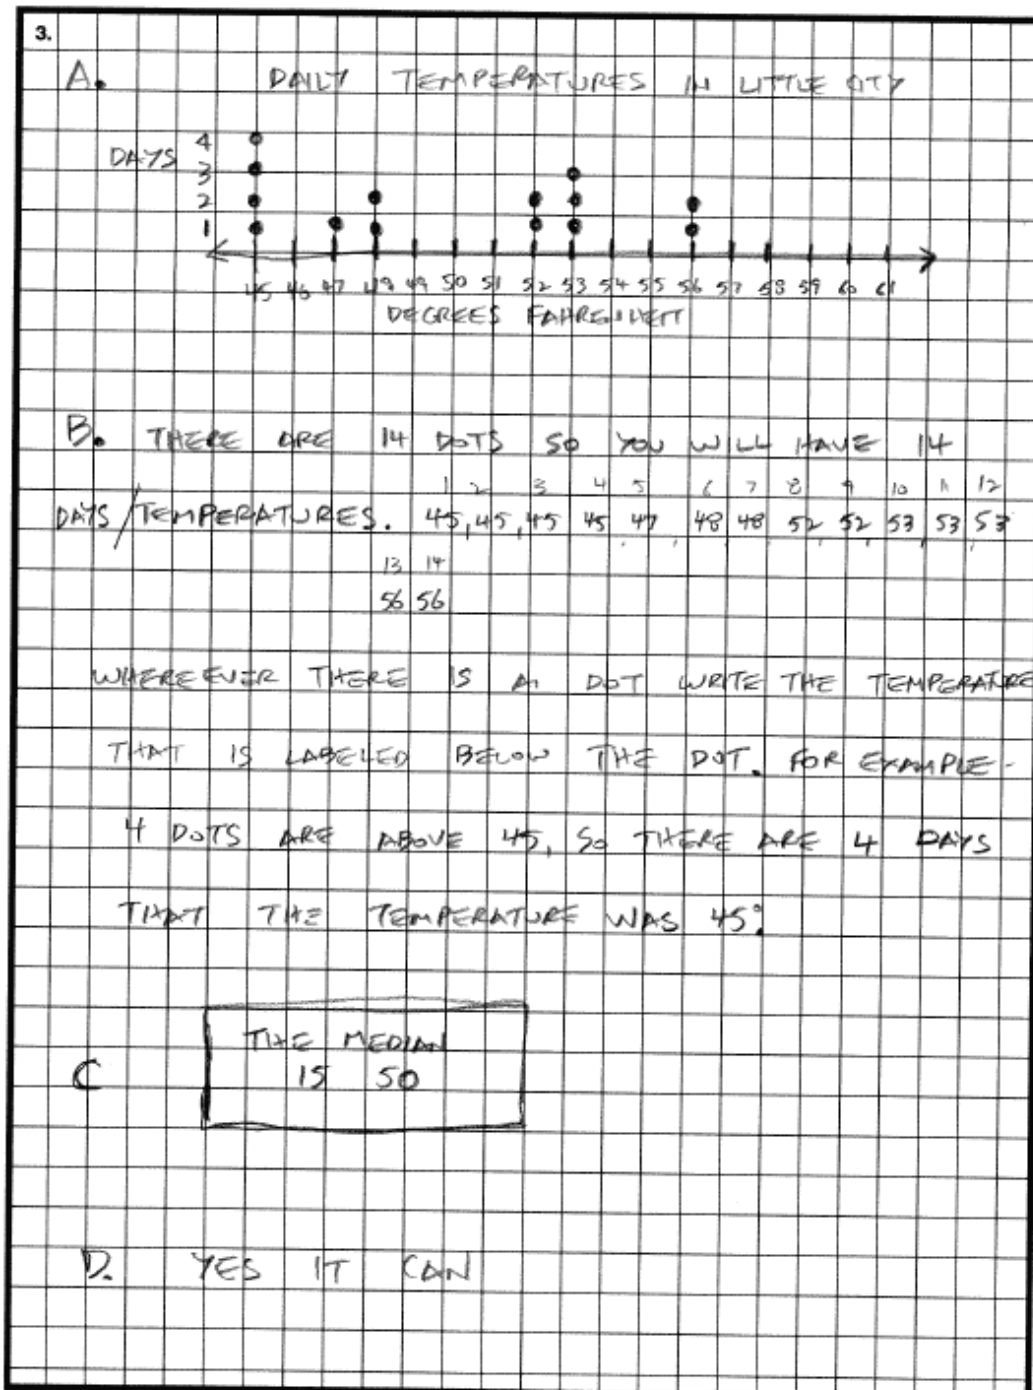 3.
A. DAILY TEMPERATURES IN LITTLE CITY
4
DAYS 3
2
1
45 46 47 48 49 50 51 52 53 54 55 56 57 58 59 60 61
DEGREES FAHRENHEIT
B. THERE ARE 14 DOTS SO YOU WILL HAVE 14
1 2 3 4 5 6 7 8 9 10 11 12
DAYS/TEMPERATURES. 45, 45, 45 45 47 48 48 52 52 53 53 53
13 14
56 56
WHEREEVER THERE IS A DOT WRITE THE TEMPERATURE
THAT IS LABELED BELOW THE DOT. FOR EXAMPLE-
4 DOTS ARE ABOVE 45, SO THERE ARE 4 DAYS
THAT THE TEMPERATURE WAS 45°.
THE MEDIAN
C IS 50
D. YES IT CAN